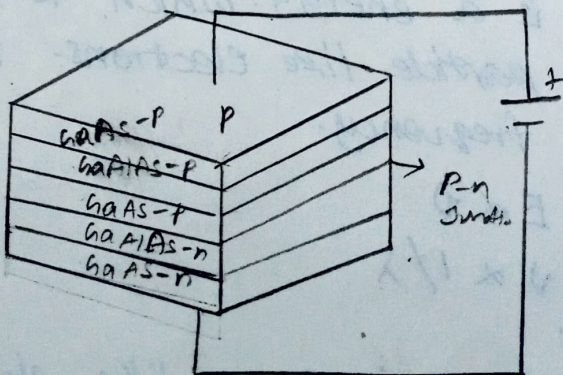 +
GaAs-P
P
GaAlAs-P
GaAs-P
GaAlAs-n
GaAs-n
P-n